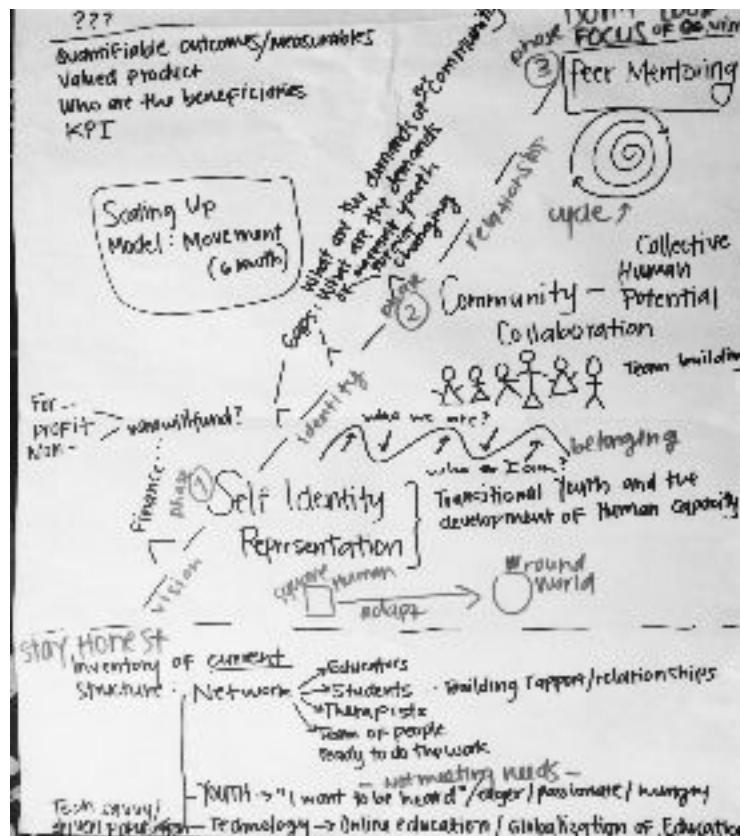 ???
Quantifiable outcomes/measurables
Valued product
Who are the beneficiaries
KPI
phase
FOCUS OF
③ Peer Mentoring
cycle
Scaling Up
Model: Movement
(6 month)
Gaps: What are the demands of community
What are the demands
of current youth
changing
relationship
phase
② Community — Collective
Human
Potential
Collaboration
Team building
identity
For --
profit
Non --
who will fund?
Finance...
who we are?
belonging
who am I am?
phase
① Self Identity
Representation
Transitional Youth and the
development of Human Capacity
vision
square Human
adapt
round
world
Stay, Honest
Inventory of current
structure: Network
Educators
Students - Building rapport/relationships
Therapists
Team of people
ready to do the work
— Not meeting needs —
YOUTH → "I want to be heard"/eager/passionate/hungry
Tech savvy/
driven population
Technology → Online education / Globalization of Education